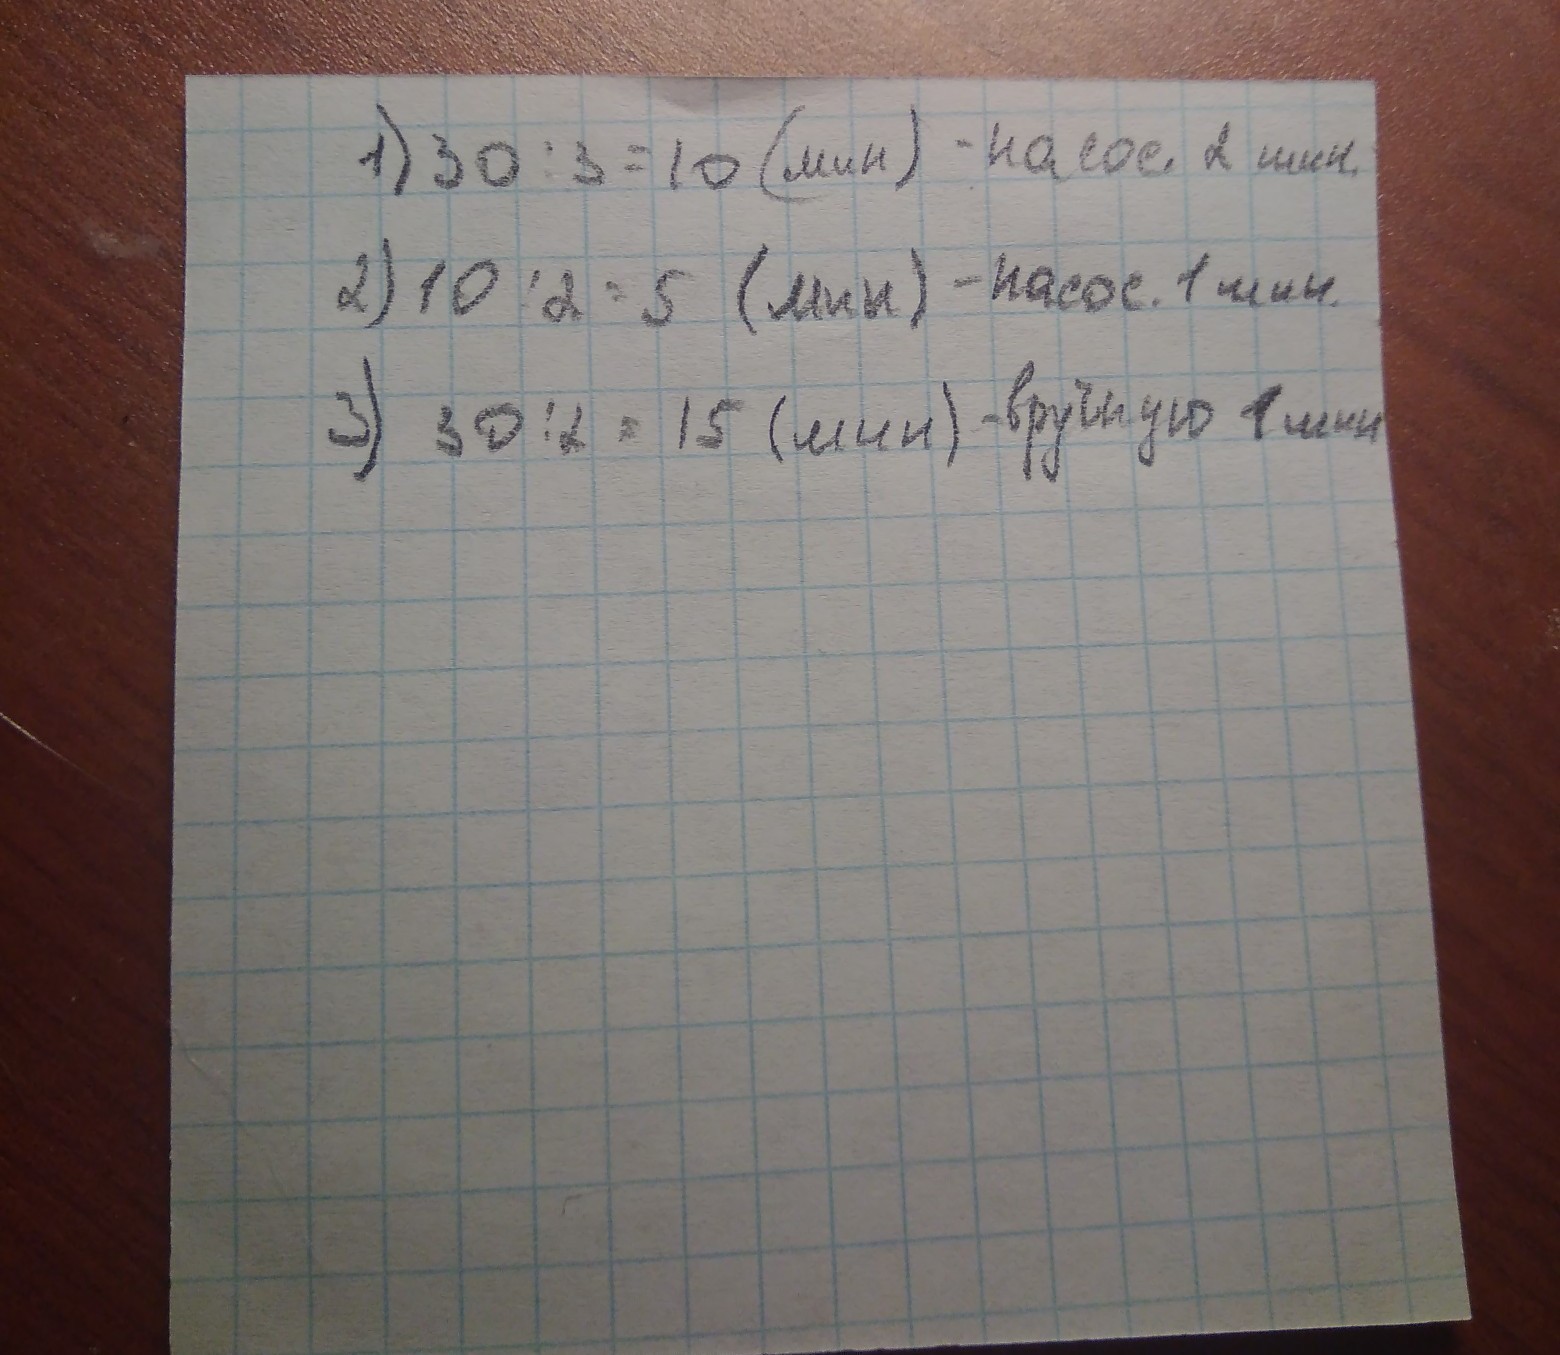 1) 30 : 3 = 10 (мин) - насос. 2 мин.
2) 10 : 2 = 5 (мин) - насос. 1 мин.
3) 30 : 2 = 15 (мин) - вручную 1 мин